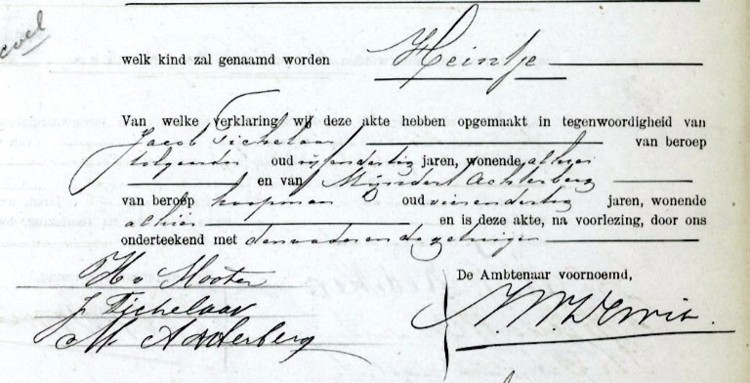 welk kind zal genaamd worden Heintje
Van welke verklaring wij deze akte hebben opgemaakt in tegenwoordigheid van
Jacob Tichelaar van beroep
oud vijfendertig jaren, wonende alhier
en van Mijndert Achterberg
van beroep koopman oud vierendertig jaren, wonende
alhier en is deze akte, na voorlezing, door ons
onderteekend met den vader en de getuigen
De Ambtenaar voornoemd,
H v
J Tichelaar
M Achterberg